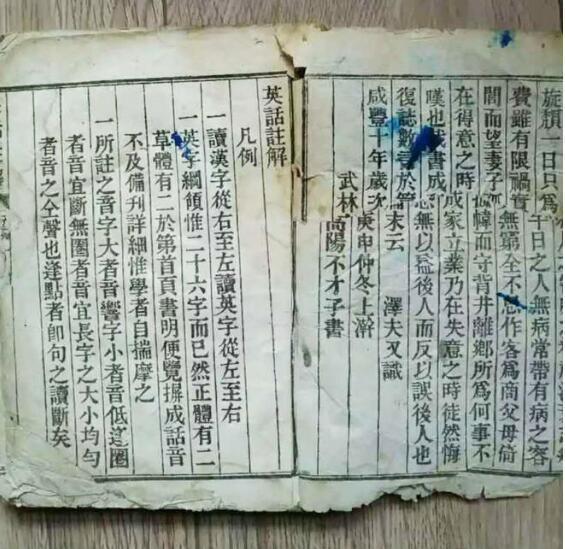 旋類一日只爲
費雖有限禍
午日之人無病常帶有病之容
閭而望妻子
無窮全不思作客爲商父母倚
幃而守背井離鄉所爲何事不
在得意之時
成家立業乃在失意之時徒然悔
嘆也哉書成
無以益後人而反以誤後人也
復誌數言於第
末云 澤夫又識
咸豐十年歲次
庚申仲冬上澣
武林
高陽不才子書
英話註解
凡例
一讀漢字從右至左讀英字從左至右
一英字綱領惟二十六字而已然正體有二
草體有二於第首頁書明便覽摒成話音
不及備刊詳細惟學者自揣摩之
一所註之音字大者音響字小者音低逢圈
者音宜斷無圈者音宜長字之大小均勻
者音之仝聲也逢點者卽句之讀斷矣